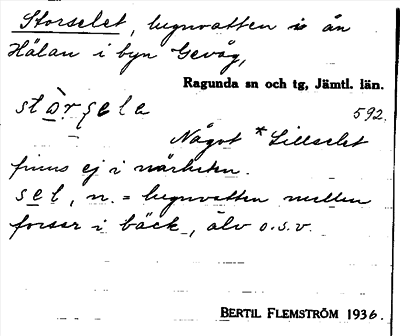 Storselet, lugnvatten i ån
Hälan i byn Gevåg,
Ragunda sn och tg, Jämtl. län.
592.
Något *Lillselet
finns ej i närheten.
sel, n. = lugnvatten mellan
forsar i bäck, älv o.s.v.
BERTIL FLEMSTRÖM 1936.